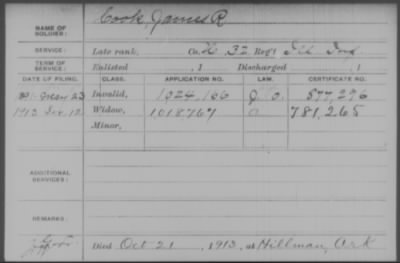 NAME OF SOLDIER: Cook, James R
SERVICE: Late rank, Co. H, 32 Reg't Ill Inf
TERM OF SERVICE: Enlisted , 1 Discharged , 1
DATE OF FILING. CLASS. APPLICATION NO. LAW. CERTIFICATE NO.
1891 23 Invalid, 1024,166 577,296
1913 12 Widow, 1018,767 781,265
Minor,
ADDITIONAL SERVICES:
REMARKS:
Died Oct 21, 1913, at Hillman, Ark